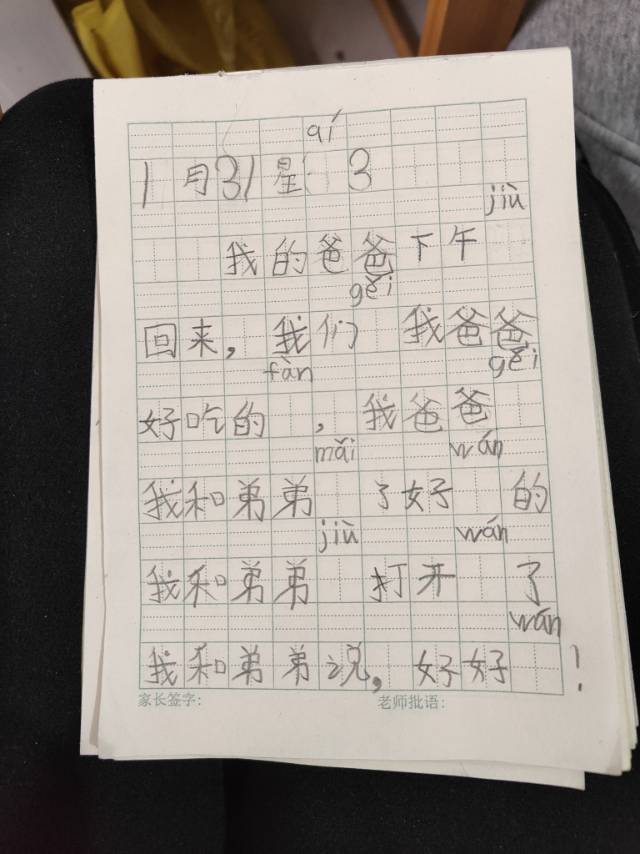 qí
1月31星 3
jiù
我的爸爸下午
gěi
回来，我们 我爸爸
fàn gěi
好吃的 ，我爸爸
mǎi wán
我和弟弟 了好 的
jiù wán
我和弟弟 打开 了
wán
我和弟弟说，好好 ！
家长签字: 老师批语: